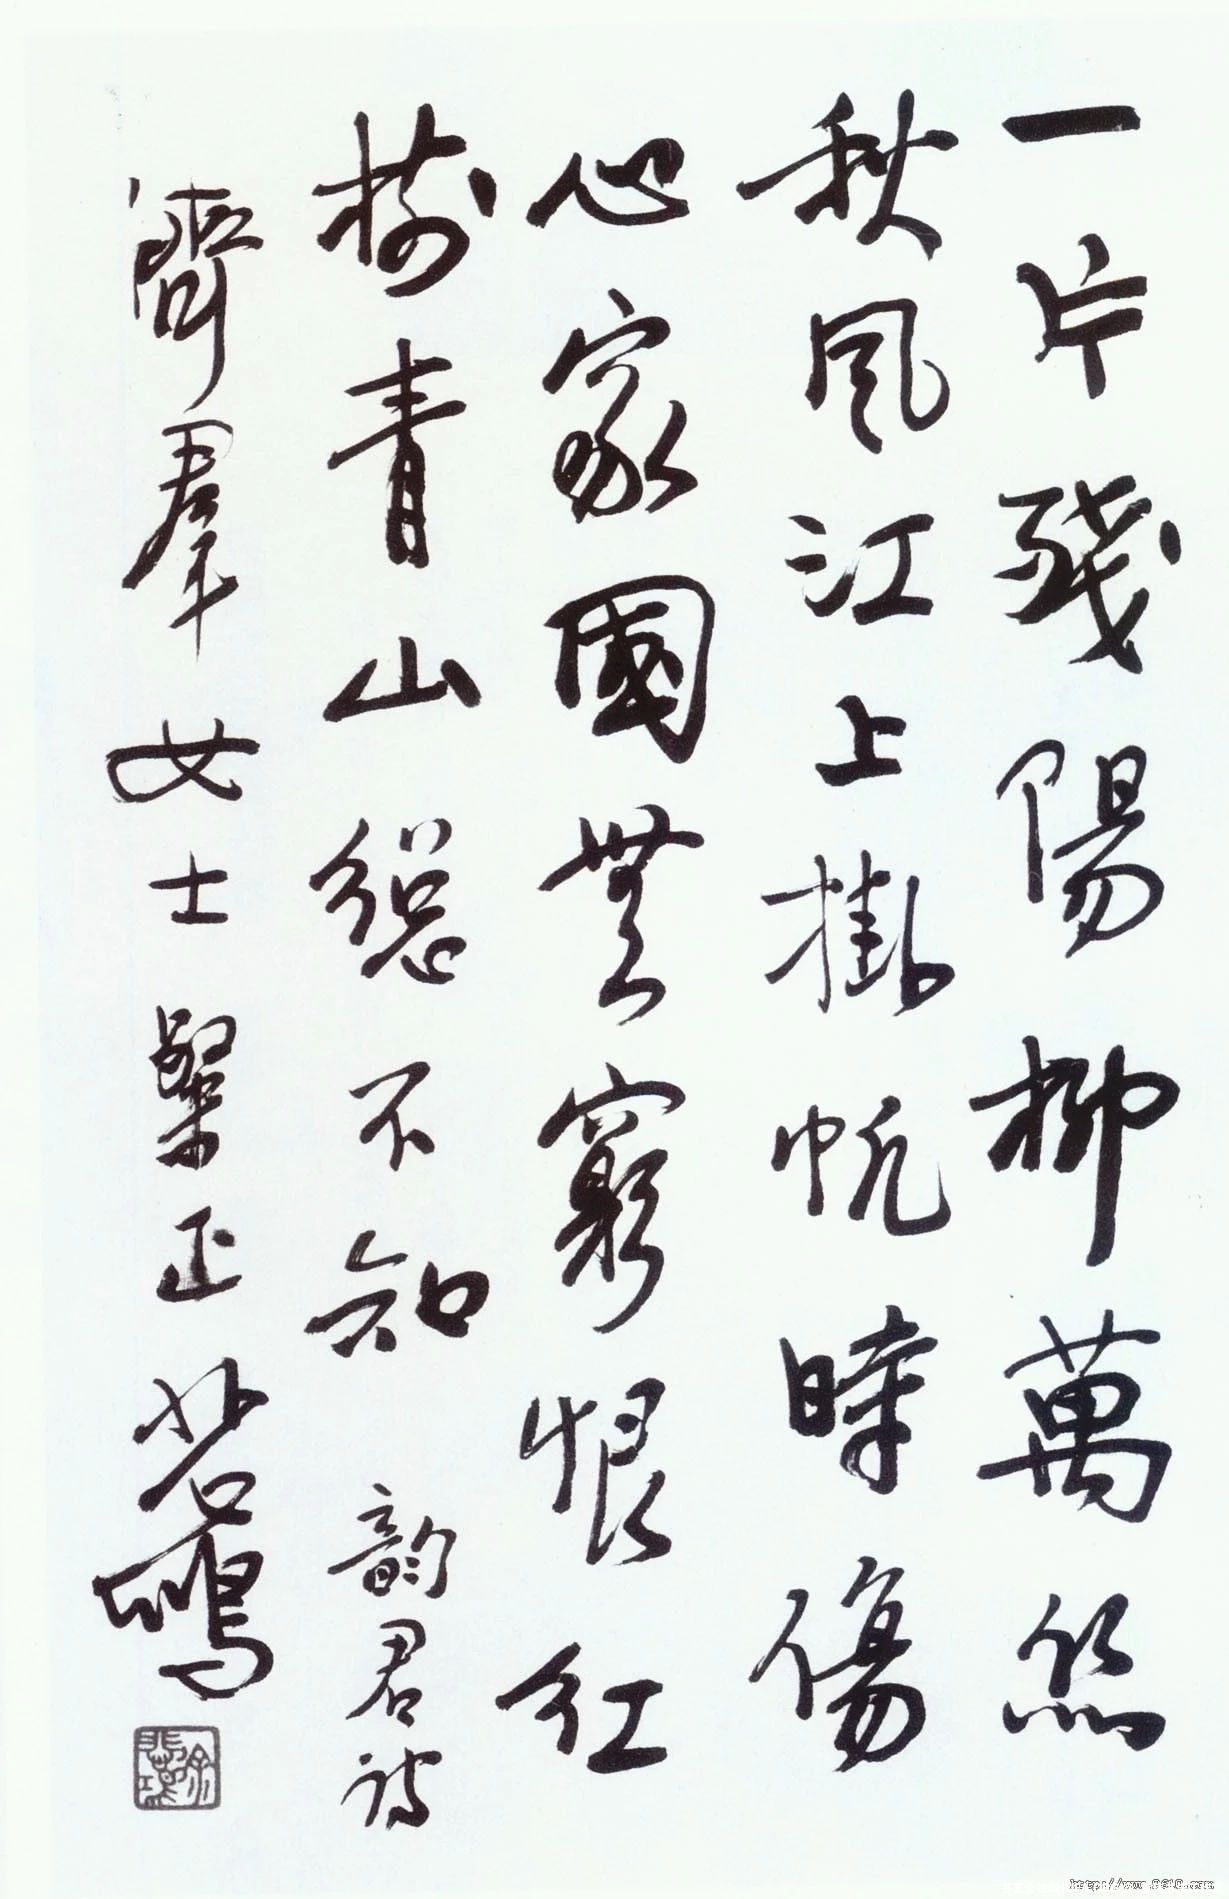 一片殘陽柳萬絲
秋風江上掛帆時傷
心家國無窮恨紅
樹青山總不知 韵君詩
齊羣女士槼正 悲鴻
http://www.9610.com